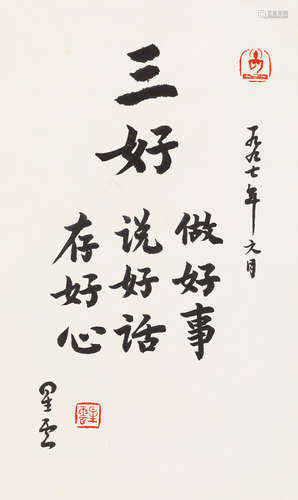 三好
做好事
说好话
存好心
一九九七年元月
星云